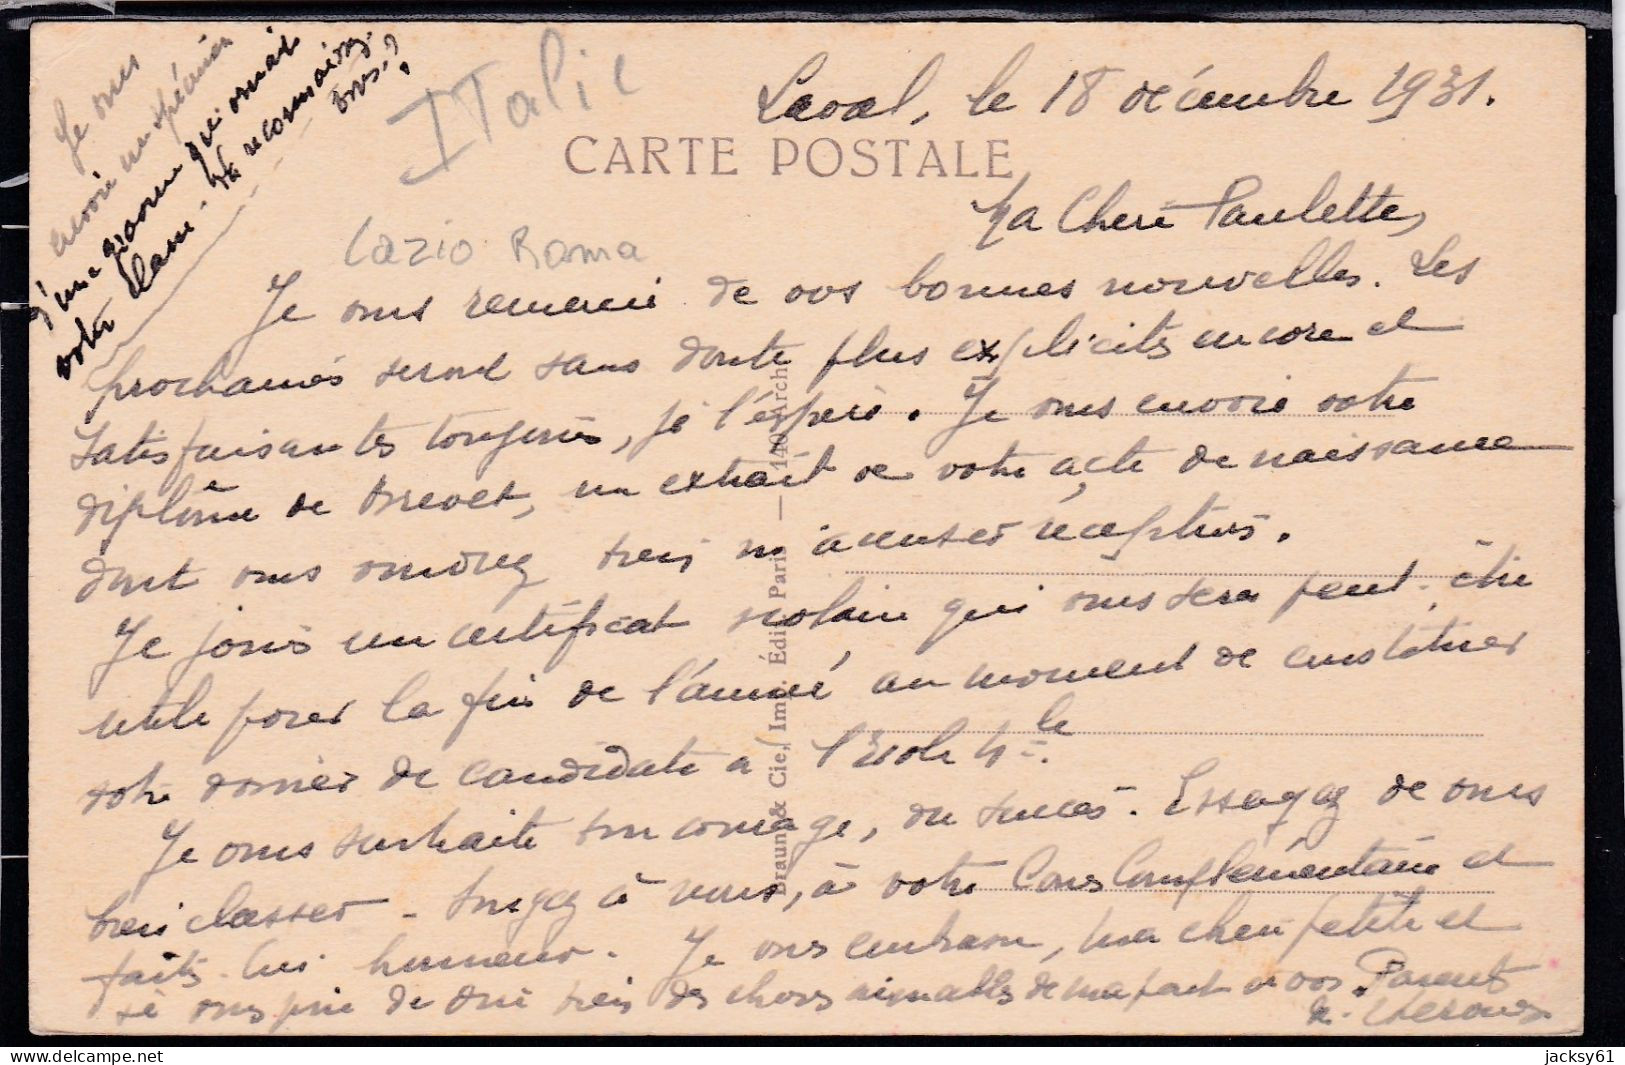 Laval, le 18 décembre 1931.
CARTE POSTALE
ITalie
Lazio Roma
Ma Chère Paulette,
Je vous remercie de vos bonnes nouvelles. Les
prochaines seront sans doute plus explicites encore et
satisfaisantes toujours, je l'espère. Je vous envoie votre
diplôme de Brevet, un extrait de votre acte de naissance
dont vous voudrez bien m'accuser réception.
Je joins un certificat scolaire qui vous sera peut-être
utile pour la fin de l'année au moment de constituer
votre dossier de candidate à l'École Nle.
Je vous souhaite bon courage, du succès. Essayez de vous
bien classer - Songez à nous, à votre Cours Complémentaire et
faites-lui honneur. Je vous embrasse, ma chère petite et
je vous prie de dire bien des choses aimables de ma part à vos Parents
Je vous
envoie un spécimen
d'une gravure qui ornait
votre classe - La reconnaissez-
vous ?
Braun & Cie, Imp. Édit. Paris — 140 Arch.
jacksy61